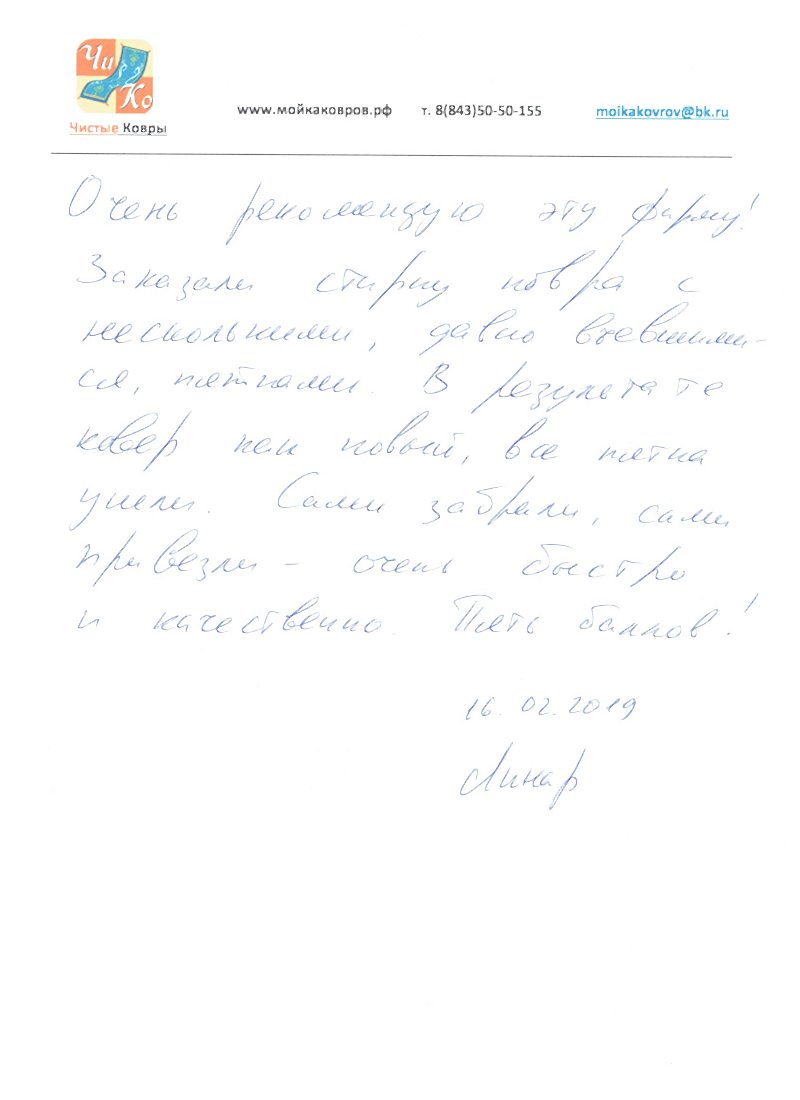 Чи
Ко
Чистые Ковры
www.мойкаковров.рф т. 8(843)50-50-155 moikakovrov@bk.ru
Очень рекомендую эту фирму!
Заказали стирку ковра с
несколькими, давно въевшими-
ся, пятнами. В результате
ковер как новый, все пятна
ушли. Сами забрали, сами
привезли – очень быстро
и качественно. Пять баллов!
16.02.2019
Линар